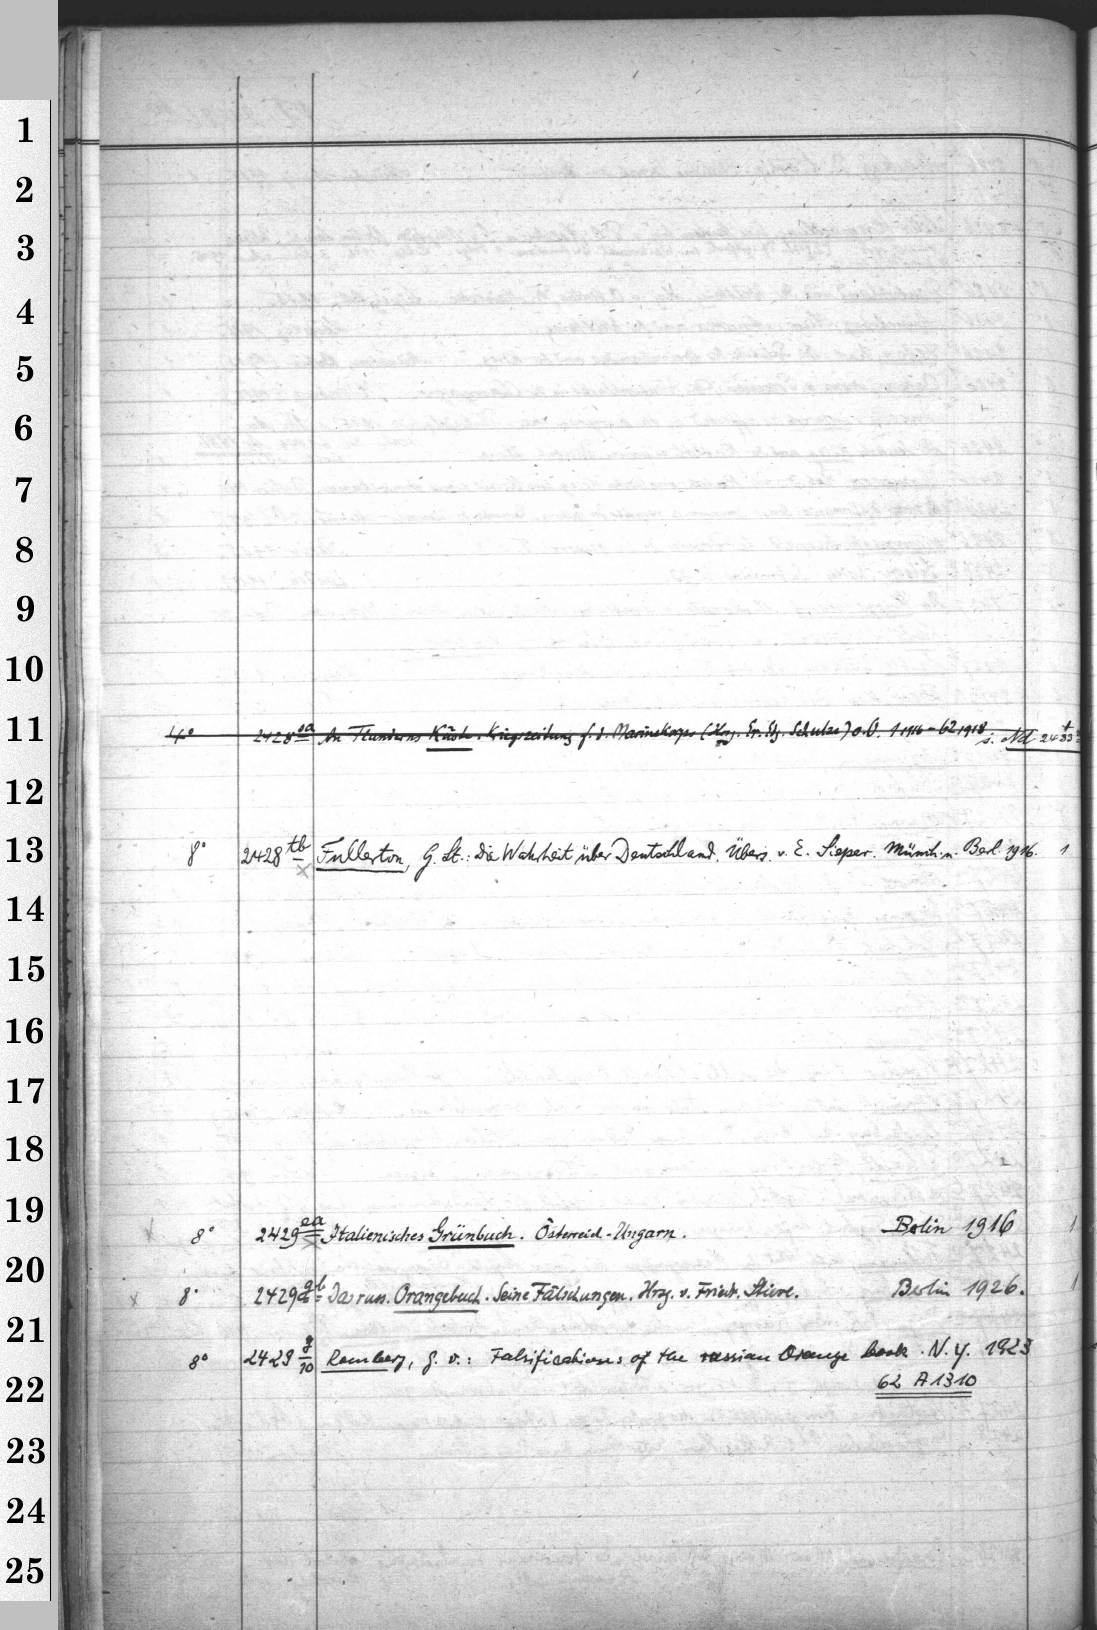 1
2
3
4
5
6
7
8
9
10
11
4° 2428 sa An Flanderns Küste. Kriegszeitung f. d. Marinekorps (Hrsg. Fr. Schulze) o.O. 1 1916 - 62 1918 s. 24
12
13
8° 2428 tb Fullerton, G. St.: Die Wahrheit über Deutschland. Übers. v. E. Sieper. Münch. u. Berl. 1916. 1
14
15
16
17
18
19
8° 2429 ea Italienisches Grünbuch. Österreich-Ungarn. Berlin 1916 1
20
8° 2429 gb Das russ. Orangebuch. Seine Fälschungen. Hrsg. v. Friedr. Stieve. Berlin 1926. 1
21
8° 2429 g/10 Romberg, G. v.: Falsifications of the russian Orange book. N. Y. 1923
22
62 A 1310
23
24
25